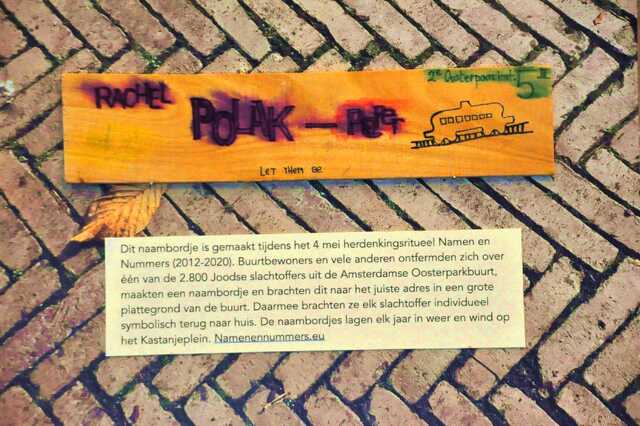 2e Oosterparkstraat. 5 II
RACHEL
POLAK — PEPER
LET THEM BE
Dit naambordje is gemaakt tijdens het 4 mei herdenkingsritueel Namen en
Nummers (2012-2020). Buurtbewoners en vele anderen ontfermden zich over
één van de 2.800 Joodse slachtoffers uit de Amsterdamse Oosterparkbuurt,
maakten een naambordje en brachten dit naar het juiste adres in een grote
plattegrond van de buurt. Daarmee brachten ze elk slachtoffer individueel
symbolisch terug naar huis. De naambordjes lagen elk jaar in weer en wind op
het Kastanjeplein. Namenennummers.eu